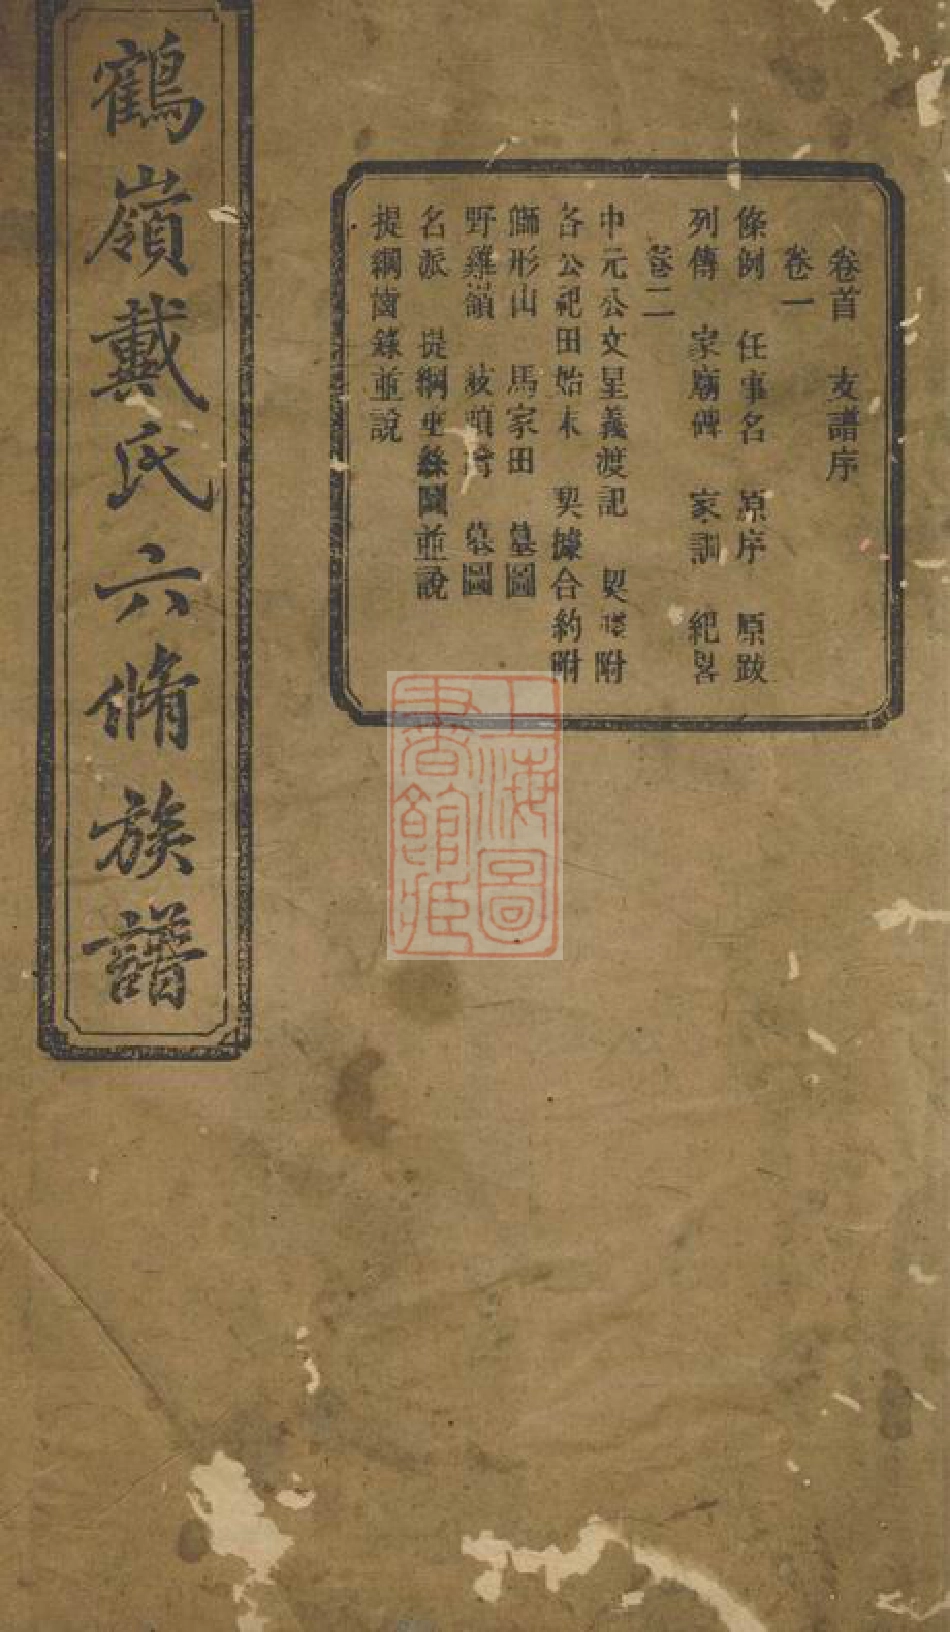 鶴嶺戴氏六脩族譜
卷首 支譜序
卷一
條例 任事名 原序 原跋
列傳 家廟碑 家訓 紀畧
卷二
中元公文星義渡記 契 附
各公祀田始末 契據合約附
獅形山 馬家田 墓圖
野雞嶺 墓圖
名派 提綱 圖並說
提綱齒錄並說
上海圖
書館